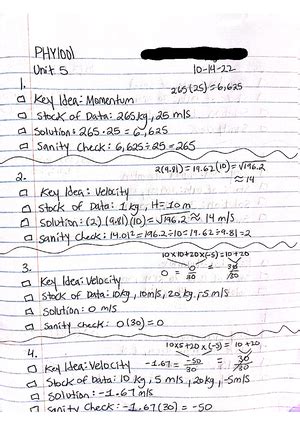 PHY1001
Unit 5 10-14-22
1. 265(25) = 6,625
Key Idea: Momentum
Stock of Data: 265kg, 25 m/s
Solution: 265·25 = 6,625
Sanity Check: 6,625÷25 = 265
2(9.81) = 19.62(10) = √196.2
2. ≈ 14
Key Idea: Velocity
Stock of Data: 1kg, H=10m
Solution: (2)(9.81)(10) = √196.2 ≈ 14 m/s
Sanity Check: 14.01² = 196.2÷10 = 19.62÷9.81 = 2
10x10+20x(-5) = 10+20
3. 0 = 0/30 = 30/30
Key Idea: Velocity
Stock of Data: 10kg, 10m/s, 20kg, -5m/s
Solution: 0 m/s
Sanity Check: 0(30) = 0
10x5+20x(-5) = 10+20
4. -1.67 = -50/30 = 30/30
Key Idea: Velocity
Stock of Data: 10 kg, 5 m/s, 20kg, -5m/s
Solution: -1.67 m/s
Sanity Check: -1.67(30) = -50